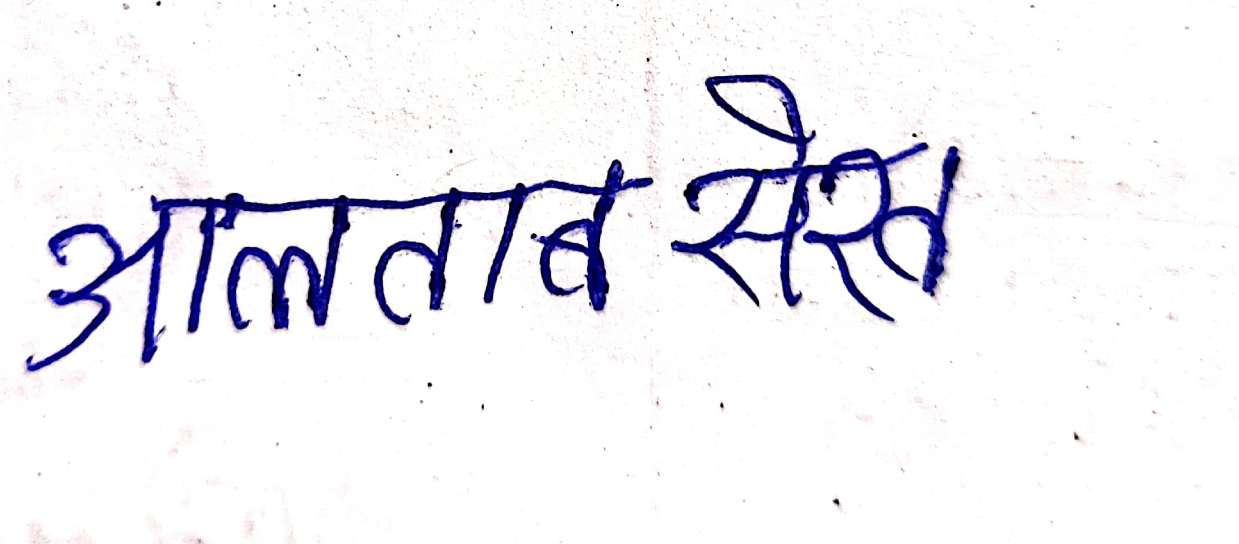 आलताब सेख